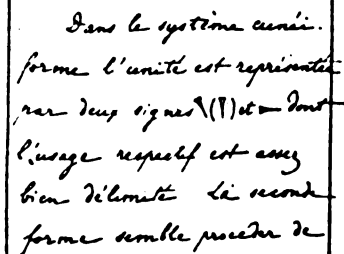 Dans le système cunéi-
forme l'unité est représentée
par deux signes 𒑊 (𒁹) et 𒀸 dont
l'usage respectif est assez
bien délimité La seconde
forme semble procéder de